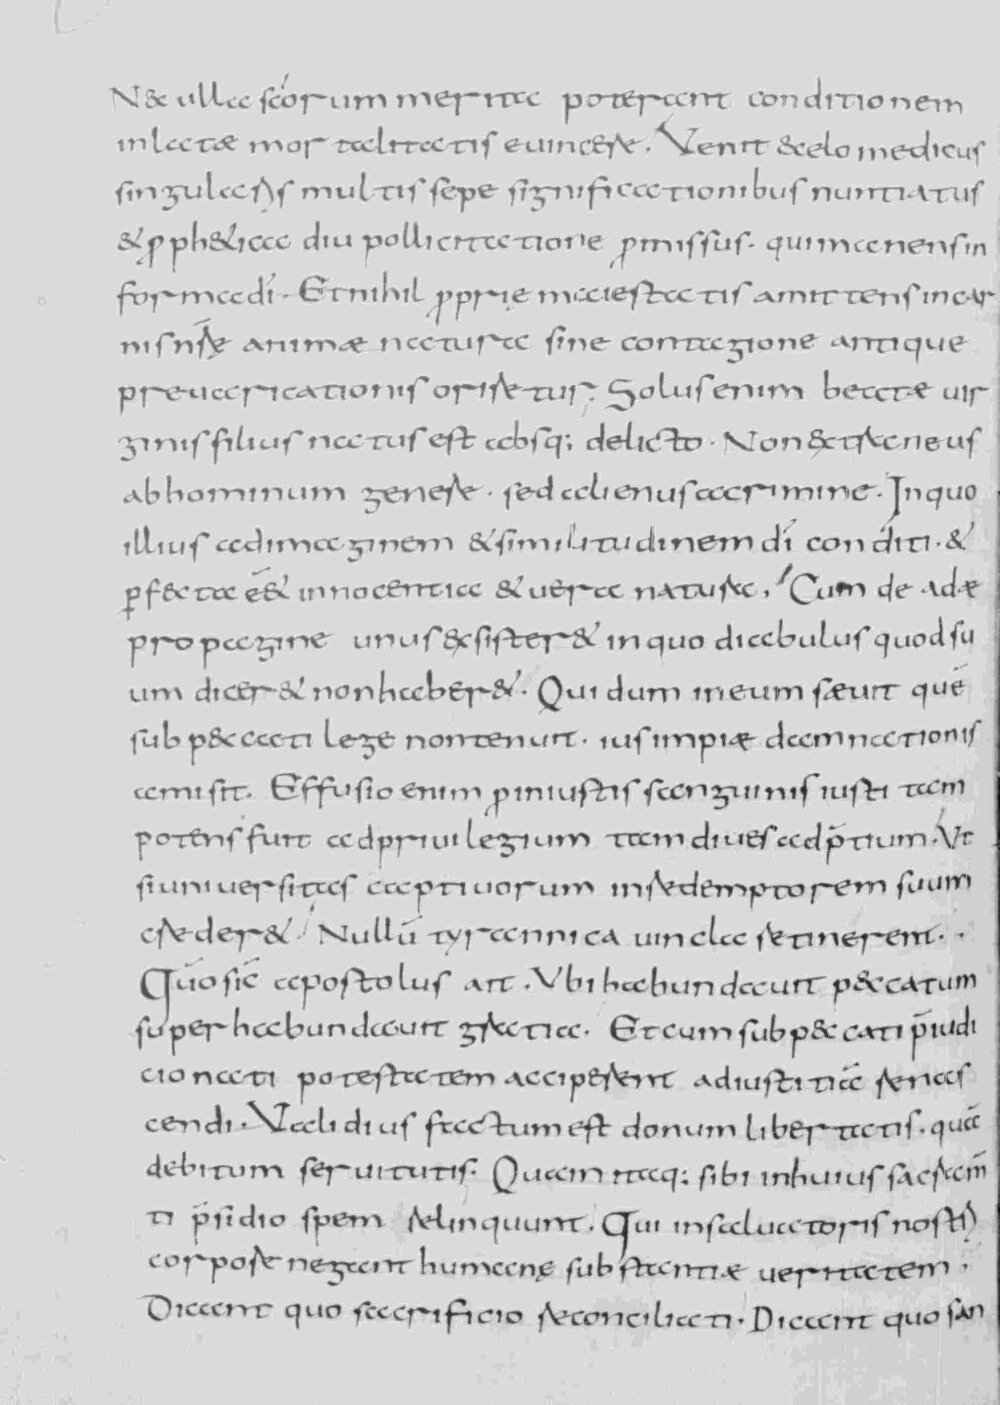 N& ulla sc̄orum merita poterant conditionem
inlatae mortalitatis euincere. Venit & celo medicus
singularis multis sepe significationibus nuntiatus
& ꝓph&ica diu pollicitatione ꝓmissus. qui manens in
forma di. Et nihil ꝓprię maiestatis amittens in car
nis nr̄ę animae natura sine contagione antique
preuaricationis orir&ur. Solus enim beatae uir
ginis filius natus est absq; delicto. Non &traneus
ab hominum genere. sed alienus a crimine. In quo
illius ad imaginem & similitudinem dī conditi. &
ꝑf&cta ē & innocentia & uera natura. Cum de adae
propagine unus &sister& in quo diabulus quod su
um dicer& non haber&. Qui dum in eum saeuit quē
sub p&cati lege non tenuit. ius impiae damnationis
amisit. Effusio enim ꝓ iniustis sanguinis iusti tam
potens fuit ad priuilegium tam diues ad p̄tium. Ut
si uniuersitas captiuorum in redemptorem suum
crեder& Nullū tyrannica uincla retinerent.
Qūo sic̄ apostolus ait. Ubi habundauit p&catum
superhabundauit gratia. Et cum sub p&cati p̄iudi
cio nati potestatem acciperent ad iustitiā renas
cendi. Validius factum est donum libertatis. quā
debitum seruitutis. Quam itaq; sibi in huius sacram̄
ti p̄sidio spem relinquunt. Qui in saluatoris nostri
corpore negant humanę substantiae ueritatem.
Dicant quo sacrificio reconciliati. Dicant quo san